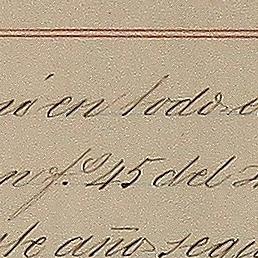 en todo
nº. 45 del
te año segu